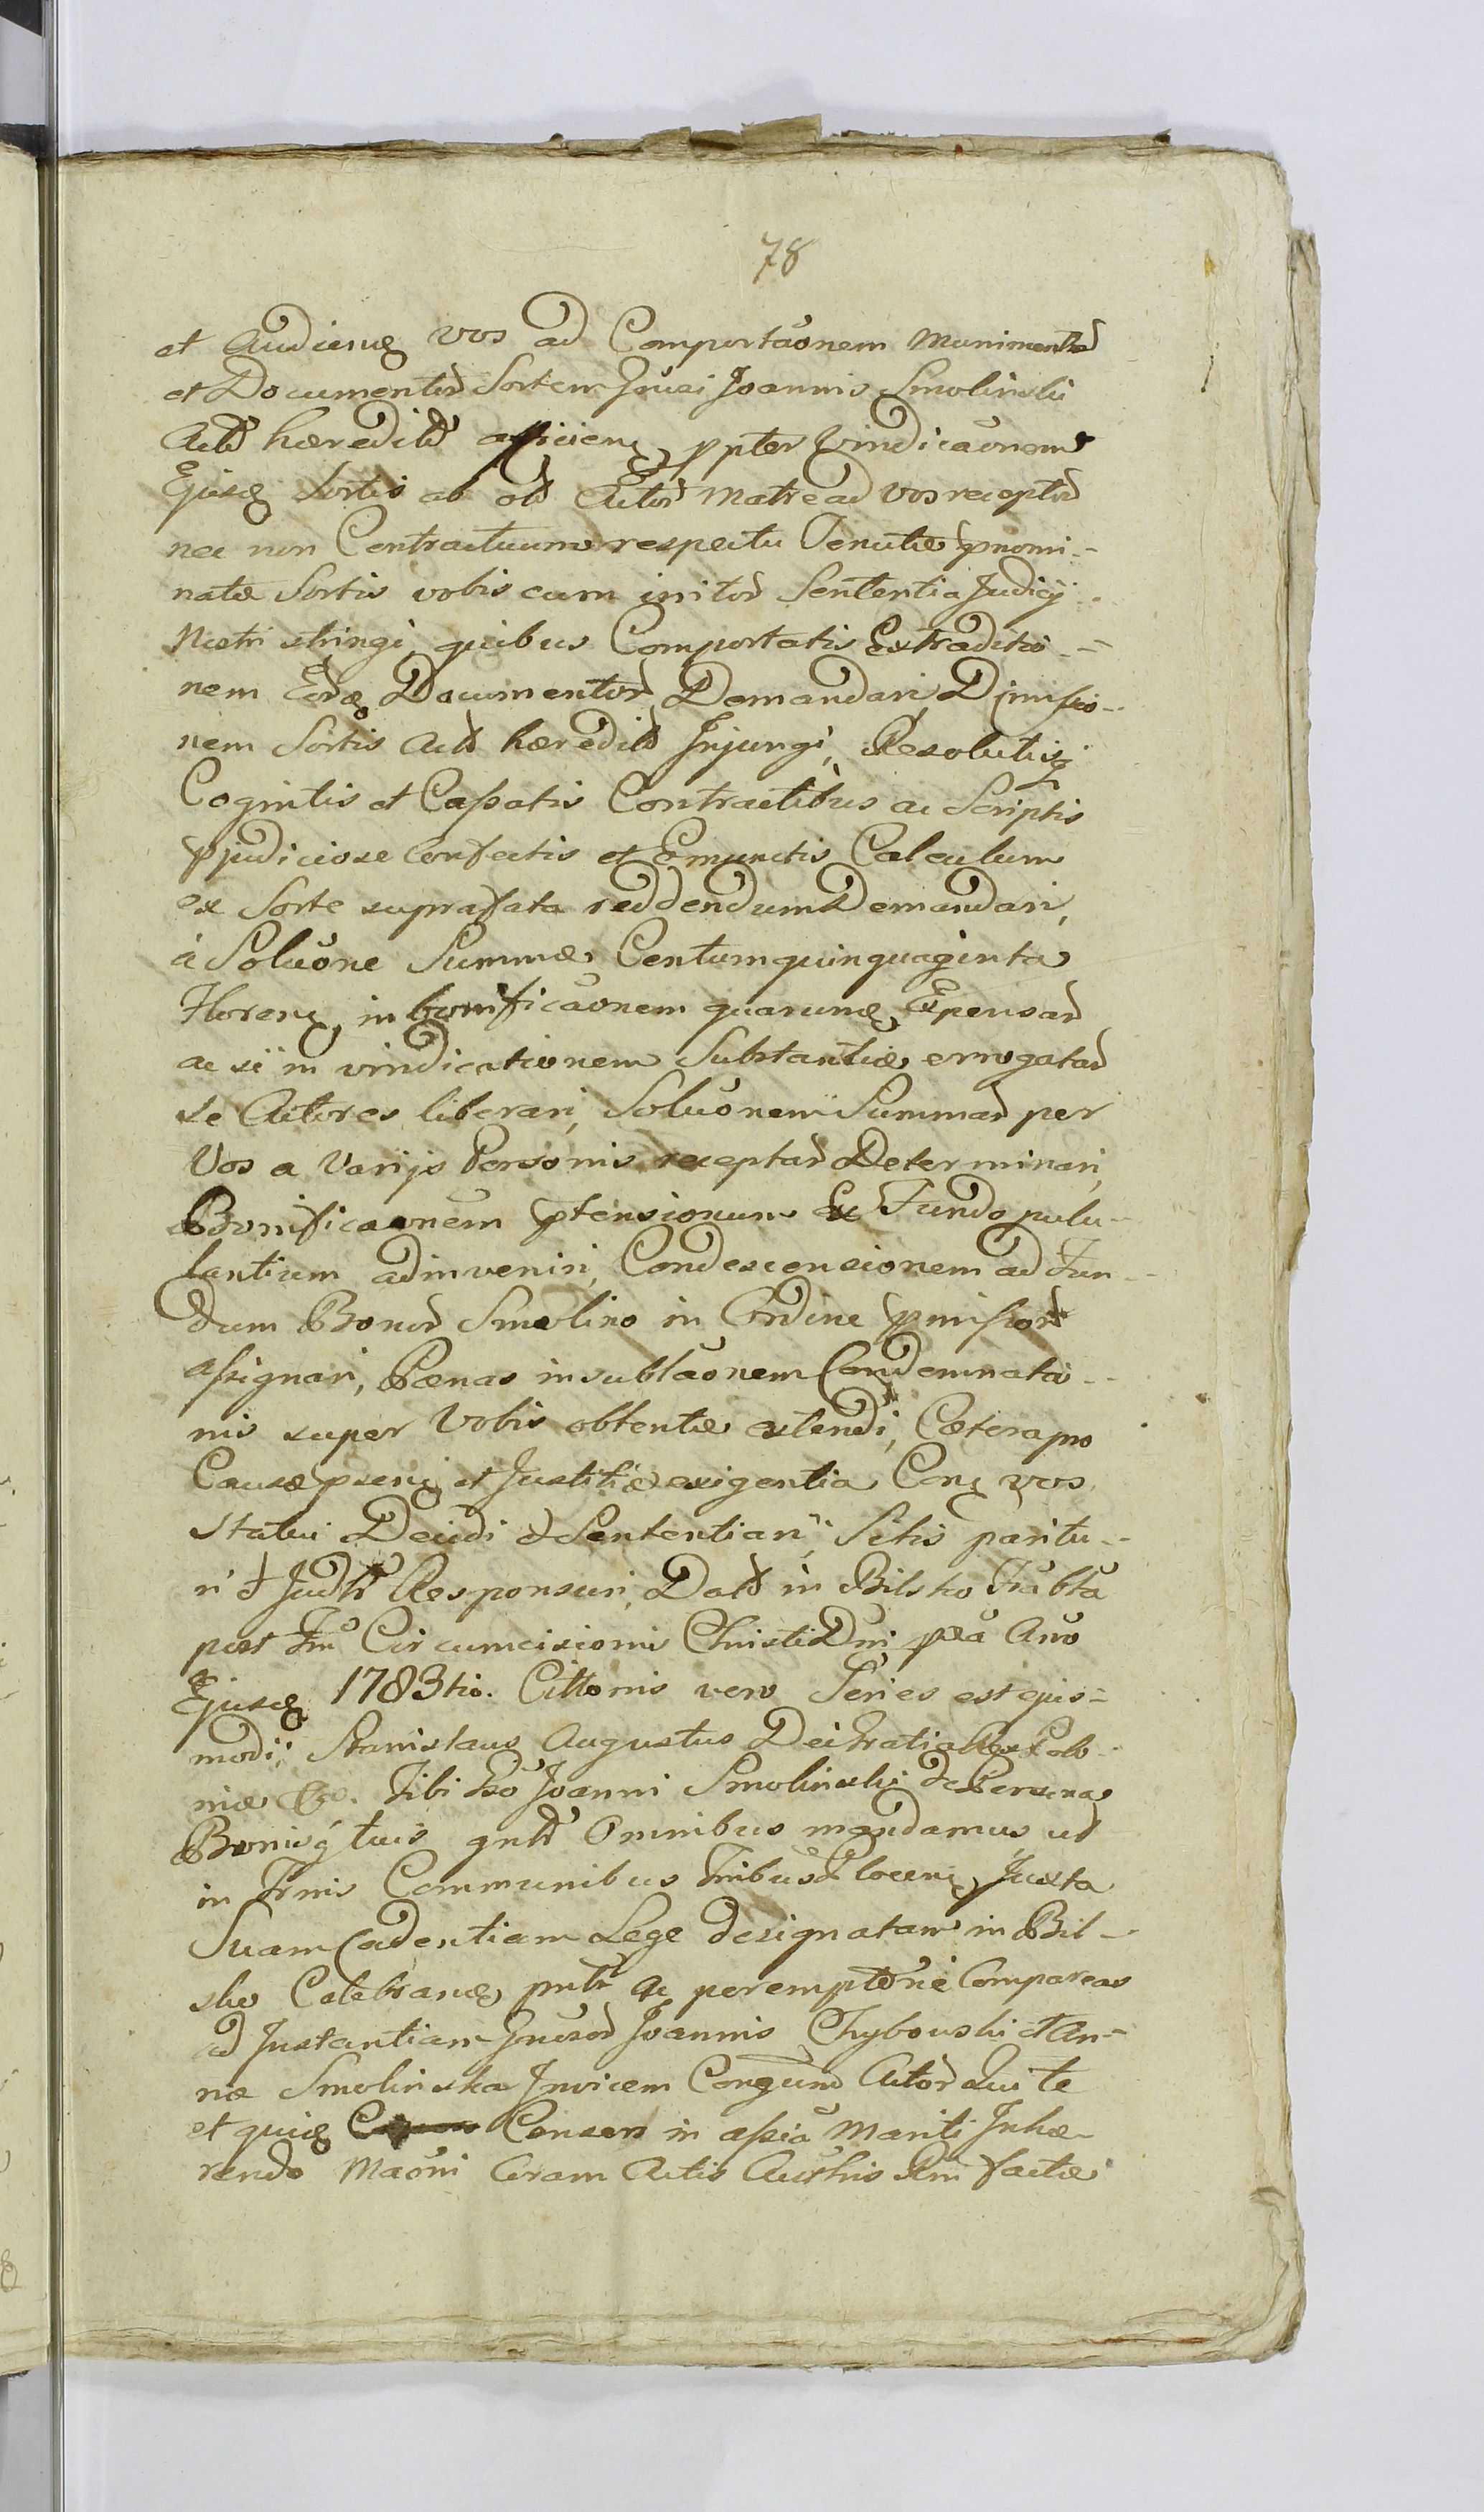 78
et Audienđ vos ad Comportaõnem Munimentoꝝ
et Documentoꝝ Sortem Gñosi Joannis Smolinski
Actꝫ hæreditꝫ afficienꝫ ppter Vindicaõnem
Ejusꝫ Sortis ab olꝫ Actoꝝ Matre ad vos receptoꝝ
nec non Contractuum respectu Tenutæ pnomi-
natæ Sortis vobis cum initoꝝ Sententia Judicij
Nostri stringi, quibus Comportatis Extraditio-
nem Eorꝫ Documentoꝝ Demandari, Dimissio-
nem Sortis Actꝫ hæreditꝫ Injungi, Resolutisq
Cognitis et Cassatis Contractibus ac Scriptis
pjudiciose Confectis et Emunctis Calculum
ex Sorte suprafata reddendum Demandari,
á Soluõne Summæ Centum quinquaginta
Florenꝫ in bonificaõnem quarunꝫ Expensaꝝ
ac si in vindicationem Substantiæ errogataꝝ
se Actores liberari, Soluõnem Summaꝝ per
Vos a Varijs Personis receptaꝝ Determinari,
Bonificaõnem ptensionum Ex Fundo pulu-
lantium adinveniri, Condescensionem ad Fun-
dum Bonoꝝ Smolino in Ordine pmissoꝝ
assignari, Pænas in sublaõnem Condemnatio-
nis super Vobis obtentæ extendi, Cætera pro
Causæ psenꝫ et Justitiæ exigentia Conꝫ vos
Statui Decidi et Sententiari, Sitis paritu-
ri et Judtr Responsuri, Datꝫ in Bilsko Frã bta
post Fm Circumcisionis Christi Dñi pxa Año
Ejusꝫ 1783tio. Cittonis vero Series est ejus-
modi; Stanislaus Augustus Dei Gratia Rex Polo-
niæ &c. Tibi Gso Joanni Smolinski de Persona
Bonisq́ tuis gnlr Omnibus mandamus ut
in Trnis Communibus Trribus Plocenꝫ Juxta
Suam Cadentiam Lege designatam in Bil-
sko Celebranꝫ pnlr ac peremptorie Compareas
ad Instantiam Gnosoꝝ Joannis Chybowski et An-
næ Smolinska Invicem Conjgum Actoꝝ Qui te
et quiꝫ Consors in assia Mariti Inhæ-
rendo Maõni Coram Actis Authis Rm factæ